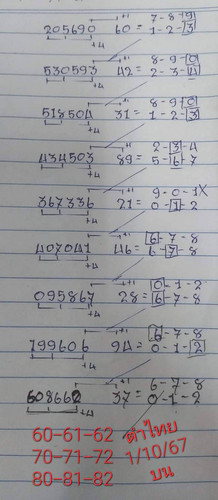 7-8-9
205690 60 = 1-2-3
+1
+4
8-9-0
530593 42 = 2-3-4
+1
+4
8-9-0
518504 31 = 1-2-3
+1
+4
2-3-4
434503 89 = 5-6-7
+1
+4
9-0-1X
367336 21 = 0-1-2
+1
+4
6-7-8
407041 46 = 6-7-8
+1
+4
0-1-2
095867 28 = 6-7-8
+1
+4
6-7-8
799606 94 = 0-1-2
+1
+4
6-7-8
608662 37 = 0-1-2
+1
+4
60-61-62 คำไทย
70-71-72 1/10/67
80-81-82 บน